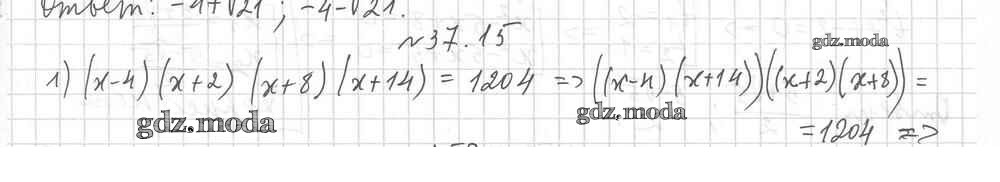 Ответ: -4+√21 ; -4-√21.
№37.15
1) (x-4) (x+2) (x+8) (x+14) = 1204 => ((x-4) (x+14)) ((x+2) (x+8)) =
= 1204 =>
gdz.moda
gdz.moda
gdz.moda